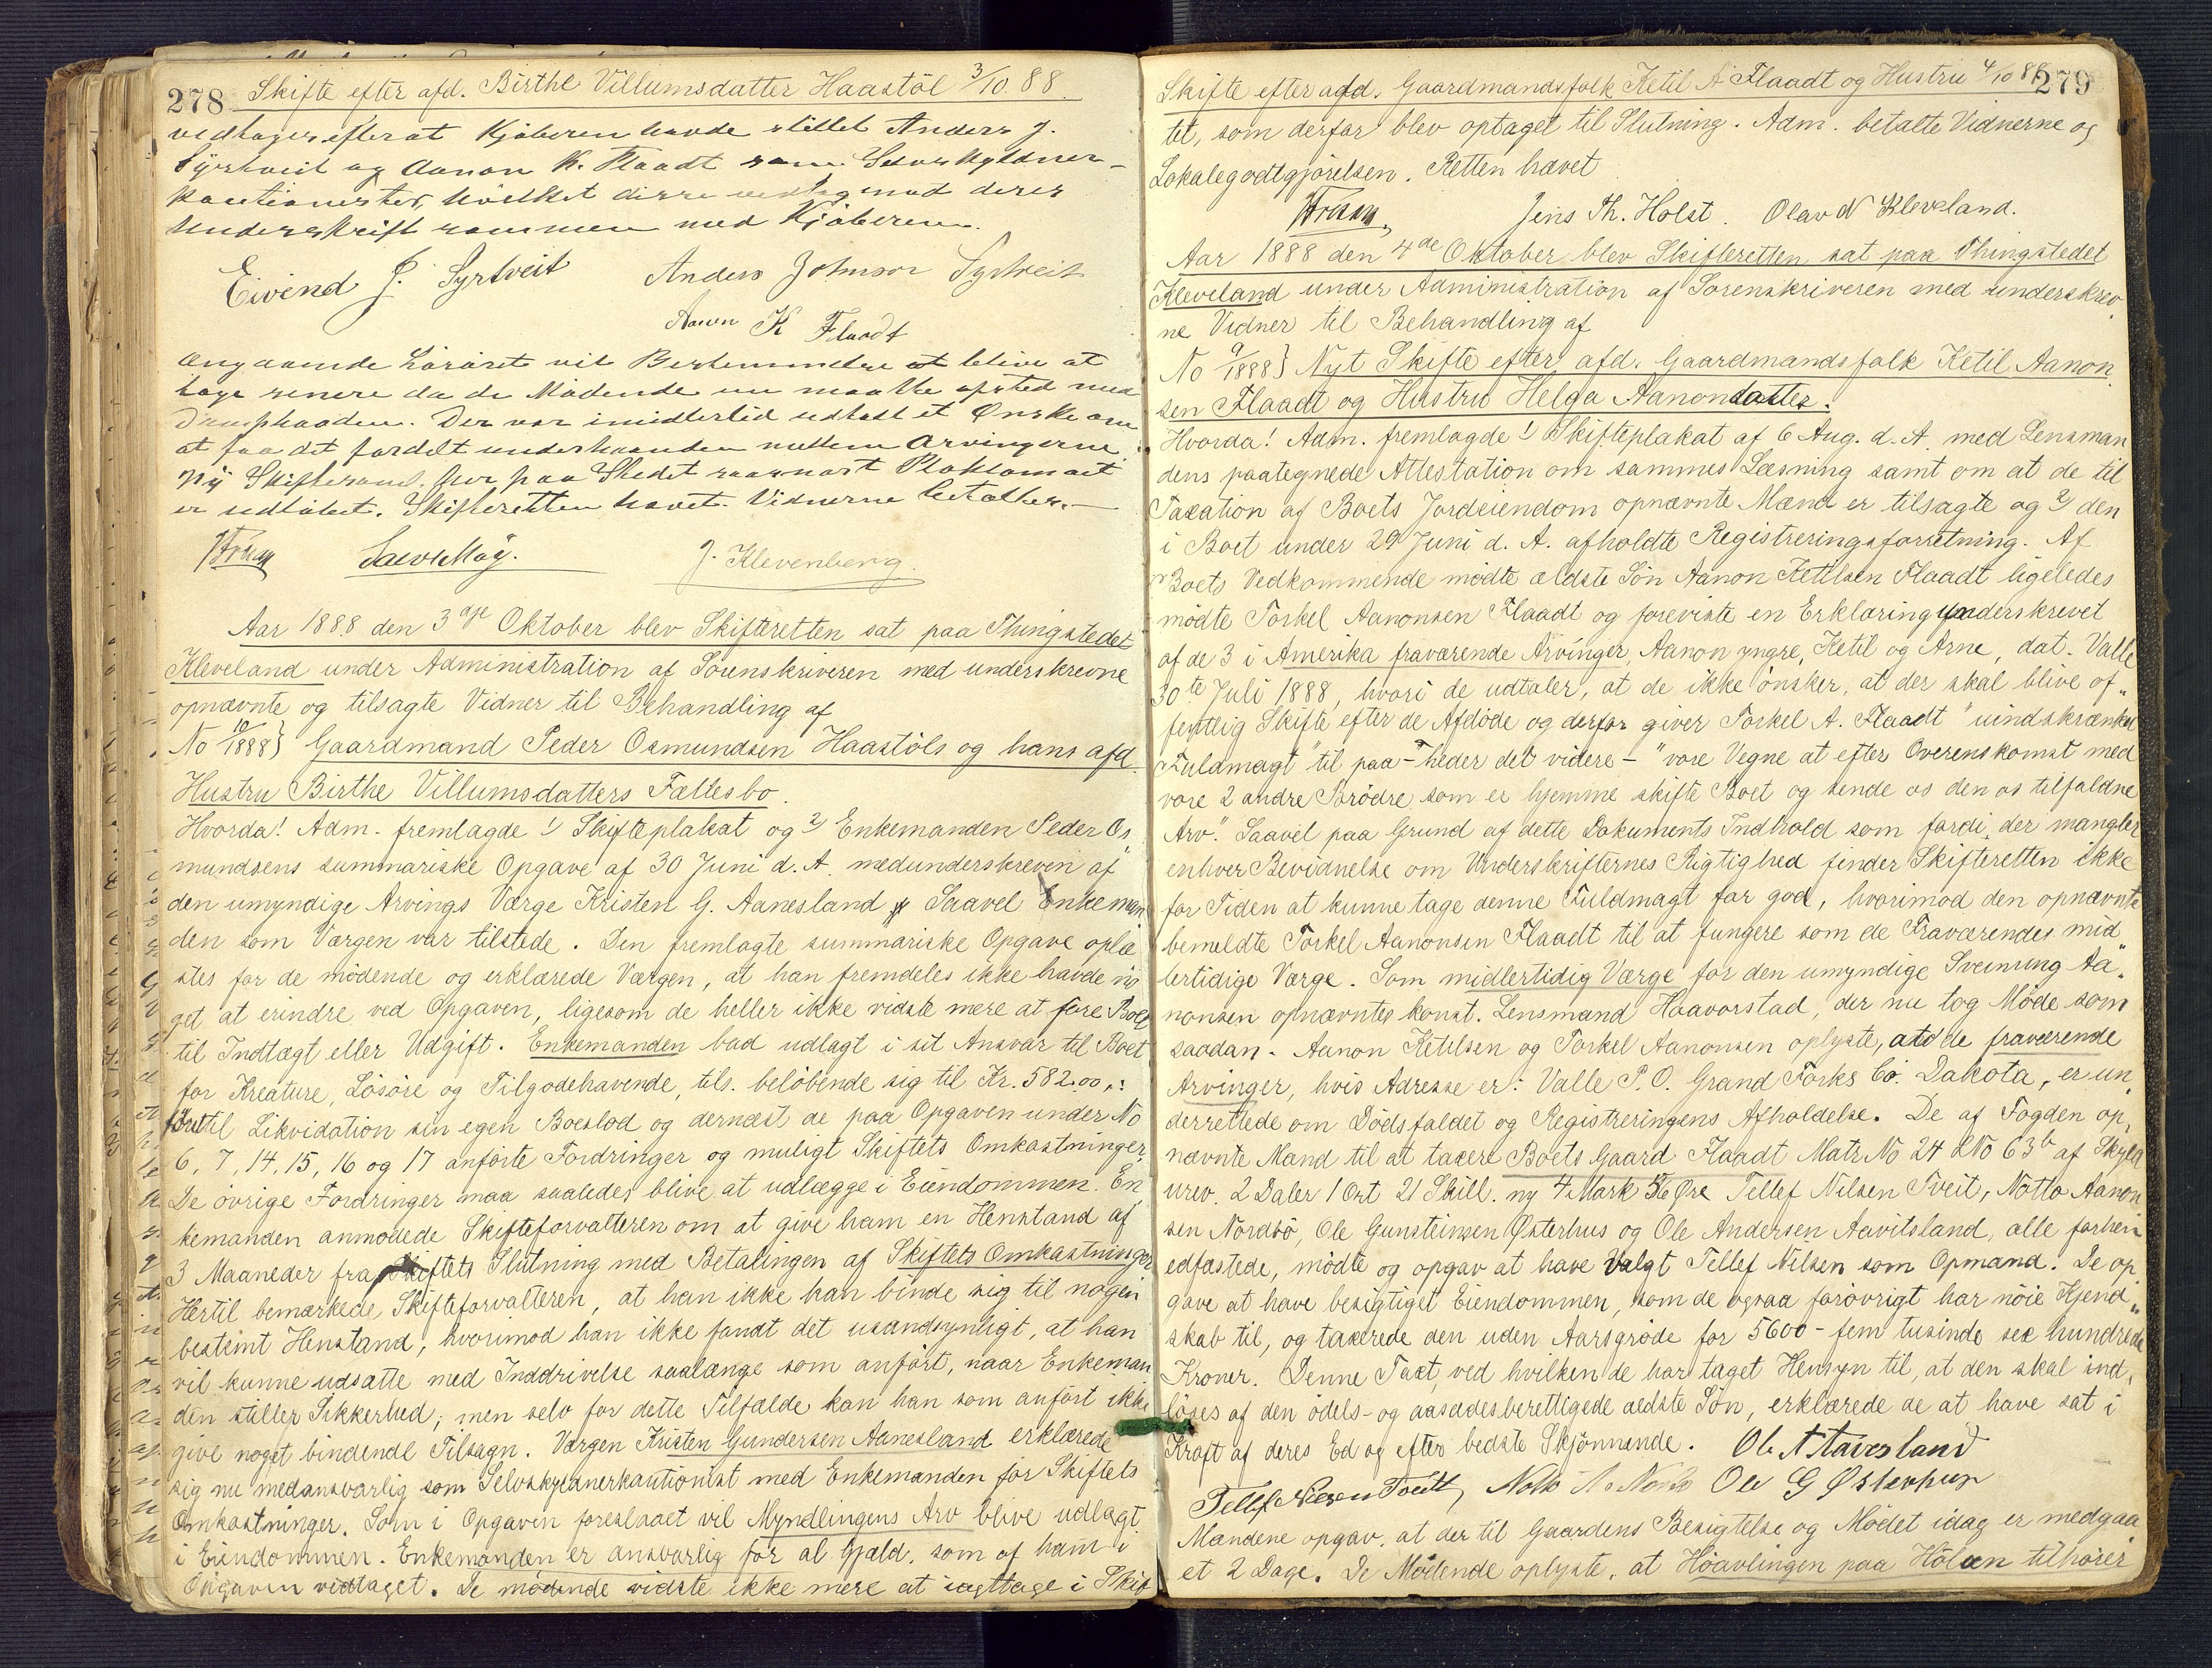 278 Skifte efter afd. Birthe Villumsdatter Haastöl 3/10 88.
vedtoges efter at Kjøberen havde stillet Anders J.
Syrtveit og Aanon K. Flaadt som Selvskyldner-
kautionister, hvilket disse vedtog med deres
Underskrift sammen med Kjøberen.
Eivend J. Syrtveit Anders Johnson Syrtveit
Aanon K Flaadt
Angaaende Løsøret vil Bestemmelse at blive at
tage senere da de Mødende nu maatte afsted med
Dampbaaden. Der var imidlertid udtalt et Ønske om
at faa det fordelt underhaanden mellem Arvingerne.
Ny Skiftesaml. her paa Stedet saasnart Proklamaet
er udløbet. Skifteretten hævet. Vidnerne betaltes.—
J. Klevenberg.
Aar 1888 den 3dje Oktober blev Skifteretten sat paa Thingstedet
Kleveland under Administration af Sorenskriveren med underskrevne
opnævnte og tilsagte Vidner til Behandling af
No 10/1888} Gaardmand Peder Osmundsen Haastöls og hans afd.
Hustru Birthe Villumsdatters Fællesbo.
Hvorda! Adm. fremlagde 1/ Skifteplakat og 2/ Enkemanden Peder Os„
mundsens summariske Opgave af 30 Juni d. A. medunderskreven af
den umyndige Arvings Værge Kristen G. Aanesland Saavel Enkeman
den som Værgen var tilstede. Den fremlagte summariske Opgave oplæ
stes for de mödende og erklærede Værgen, at han fremdeles ikke havde no
get at erindre ved Opgaven, ligesom de heller ikke vidste mere at före Boet
til Indtægt eller Udgift. Enkemanden bad udlagt i sit Ansvar til Boet
for Kreature, Lösöre og Tilgodehavende, tils. belöbende sig til Kr. 582.00,:
först til Likvidation sin egen Boeslod og dernæst de paa Opgaven under No
6, 7, 14, 15, 16 og 17 anförte Fordringer og muligt Skiftets Omkostninger,
De övrige Fordringer maa saaledes blive at udlægge i Eiendommen. En
kemanden anmodede Skifteforvalteren om at give ham en Henstand af
3 Maaneder fra Skiftets Slutning med Betalingen af Skiftets Omkostninger
Hertil bemærkede Skifteforvalteren, at han ikke kan binde sig til nogen
bestemt Henstand, hvorimod han ikke fandt det usandsynligt, at han
vil kunne udsætte med Inddrivelse saalænge som anfört, naar Enkeman
den stiller Sikkerhed, men selv for dette Tilfælde kan han som anfört ikke
give noget bindende Tilsagn. Værgen Kristen Gundersen Aanesland erklærede
sig nu medansvarlig som Selvskyldnerkautionist med Enkemanden for Skiftets
Omkostninger. Som i Opgaven foreslaaet vil Myndlingens Arv blive udlagt
i Eiendommen. Enkemanden er ansvarlig for al Gjæld, som af ham i
Opgaven vedtaget. De mödende vidste ikke mere at iagttage i Skif
Skifte efter afd. Gaardmandsfolk Ketil A Flaadt og Hustru 4/10 88 279
tet, som derfor blev optaget til Slutning. Adm. betalte Vidnerne og
Lokalegodtgjörelsen. Retten hævet
Jens Th. Holst. Olav N Kleveland.
Aar 1888 den 4de Oktober blev Skifteretten sat paa Thingstedet
Kleveland under Administration af Sorenskriveren med underskrev„
ne Vidner til Behandling af
No 9/1888} Nyt Skifte efter afd. Gaardmandsfolk Ketil Aanon„
sen Flaadt og Hustru Helga Aanondatter.
Hvorda! Adm. fremlagde 1/ Skifteplakat af 6 Aug. d. A. med Lensman
dens paategnede Attestation om sammes Læsning samt om at de til
Taxation af Boets Jordeiendom opnævnte Mænd er tilsagte og 2/ den
i Boet under 29 Juni d. A. afholdte Registreringsforretning. Af
Boets Vedkommende mödte ældste Sön Aanon Ketilsen Flaadt ligeledes
mödte Torkel Aanonsen Flaadt og foreviste en Erklæring underskrevet
af de 3 i Amerika fraværende Arvinger, Aanon yngre, Ketil og Arne, dat. Valle
30te Juli 1888, hvori de udtaler, at de ikke önsker, at der skal blive of„
fentlig Skifte efter de Afdöde og derfor giver Torkel A. Flaadt "uindskrænket
Fuldmagt" til paa – heder det videre – "vore Vegne at efter Overenskomst med
vore 2 andre Brödre som er hjemme skifte Boet og sende os den os tilfaldne
Arv". Saavel paa Grund af dette Dokuments Indhold som fordi der mangler
enhver Bevidnelse om Underskrifternes Rigtighed finder Skifteretten ikke
for Tiden at kunne tage denne Fuldmagt for god, hvorimod den opnævnte
bemeldte Torkel Aanonsen Flaadt til at fungere som de Fraværendes mid
lertidige Værge. Som midlertidig Værge for den umyndige Sveinung Aa„
nonsen opnævntes konst. Lensmand Haavorstad, der nu tog Möde som
saadan. Aanon Ketilsen og Torkel Aanonsen oplyste, at de fraværende
Arvinger, hvis Adresse er: Valle P. O. Grand Forks Co. Dakota, er un„
derrettede om Dödsfaldet og Registreringens Afholdelse. De af Fogden op„
nævnte Mænd til at taxere Boets Gaard Flaadt Matr No 24 LNo 63b af Skyld
urev. 2 Daler 1 Ort 21 Skill. ny 4 Mark 56 Øre Tellef Nilsen Tveit, Notto Aanon
sen Nordbö, Ole Gunsteinsen Østerhus og Ole Andersen Aavitsland, alle forhen
edfæstede, mödte og opgav at have valgt Tellef Nilsen som Opmand. De op
gave at have besigtiget Eiendommen, som de ogsaa forövrigt har nöie Kjend„
skab til, og taxerede den uden Aarsgröde for 5600 – fem tusinde sex hundrede
Kroner. Denne Taxt, ved hvilken de har taget Hensyn til, at den skal ind„
löses af den odels- og aasædesberettigede ældste Sön, erklærede de at have sat i
Kraft af deres Ed og efter bedste Skjönnende.
Ole G Østerhus
Mændene opgav, at der til Gaardens Besigtelse og Mödet idag er medgaa
et 2 Dage. De Mödende oplyste, at Höavlingen paa Hölæn tilhörer